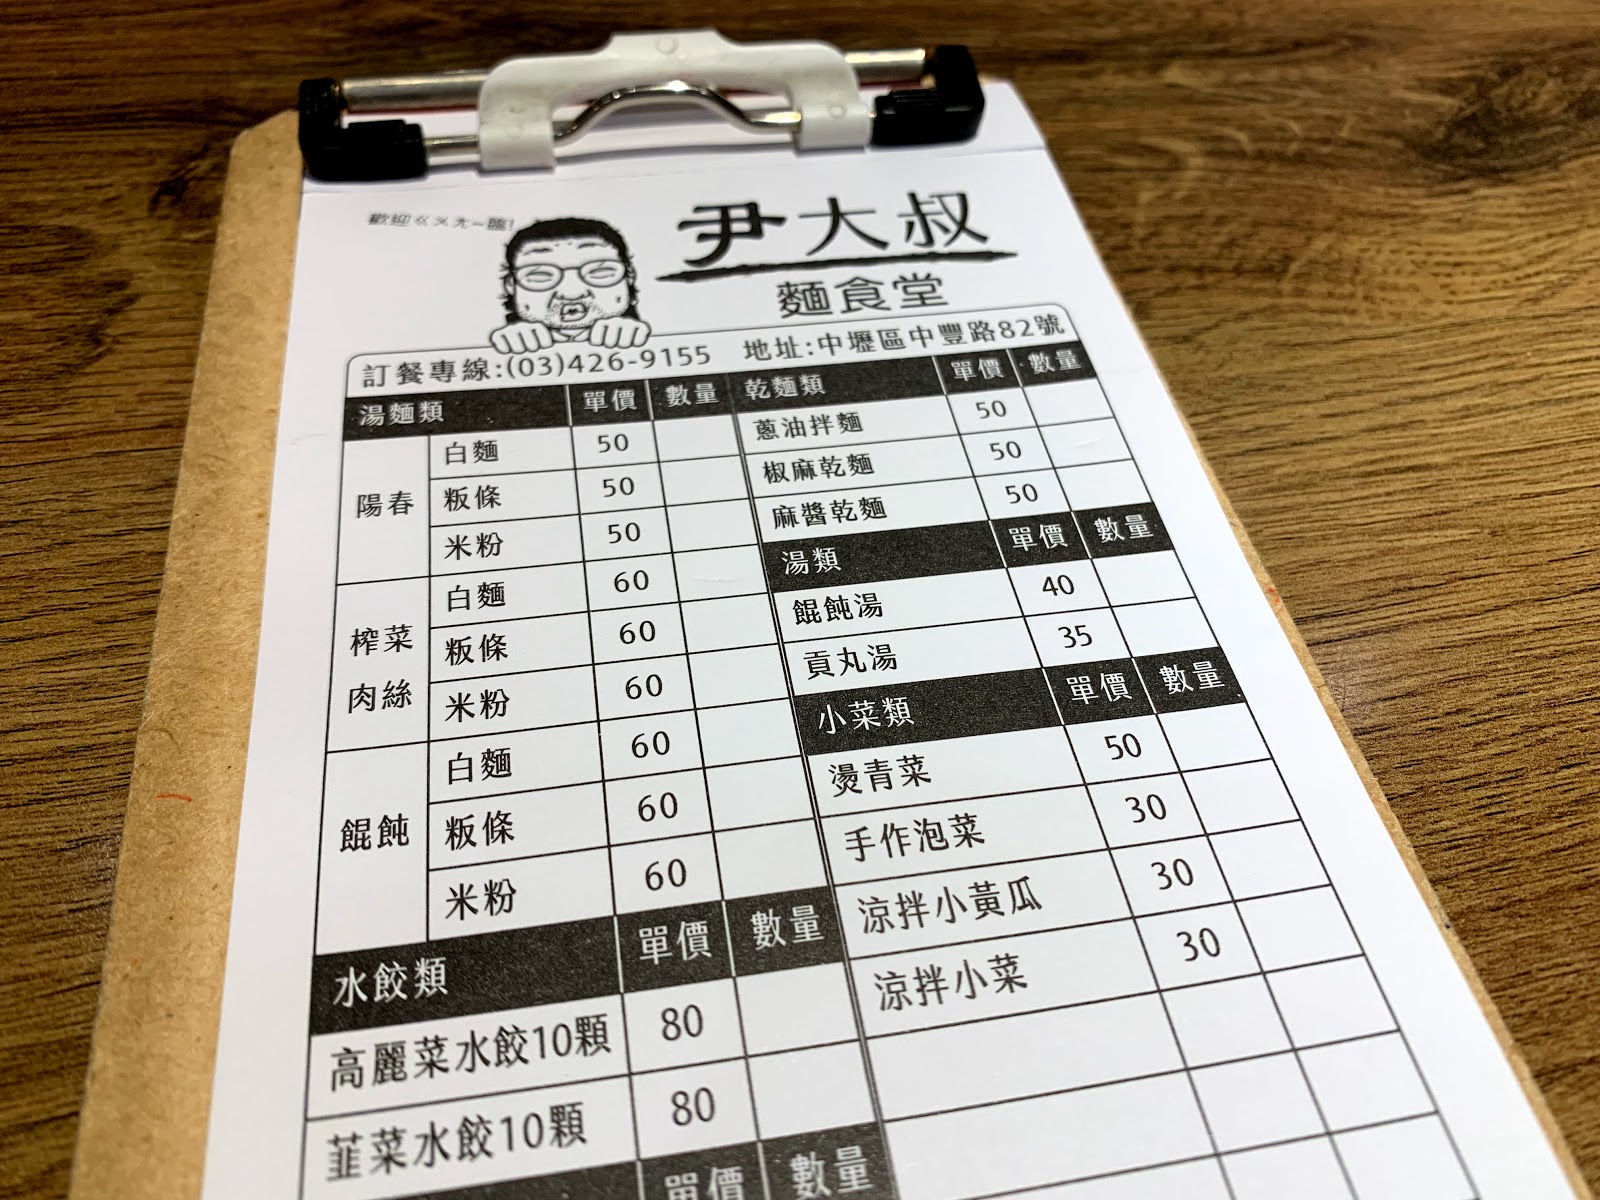 歡迎ㄍㄨㄤ~臨!
尹大叔
麵食堂
訂餐專線:(03)426-9155 地址:中壢區中豐路82號
湯麵類 單價 數量
陽春
白麵 50
粄條 50
米粉 50
榨菜
肉絲
白麵 60
粄條 60
米粉 60
餛飩
白麵 60
粄條 60
米粉 60
水餃類 單價 數量
高麗菜水餃10顆 80
韮菜水餃10顆 80
單價 數量
乾麵類 單價 數量
蔥油拌麵 50
椒麻乾麵 50
麻醬乾麵 50
湯類 單價 數量
餛飩湯 40
貢丸湯 35
小菜類 單價 數量
燙青菜 50
手作泡菜 30
涼拌小黃瓜 30
涼拌小菜 30